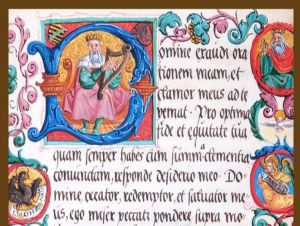 Domine exaudi ora
tionem meam, et
clamor meus ad te
veniat. Pro optima
fide et equitate tua
quam semper habes cum summa clementia
coniunctam, responde desiderio meo. Do
mine, creator, redemptor, et salvator me
us, ego miser peccati pondere supra mo